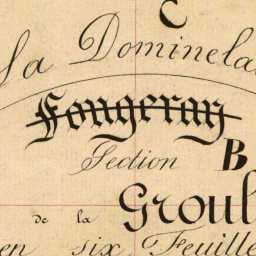 C
La Dominela
Fougeray
Section B
de la Groul
en six Feuille